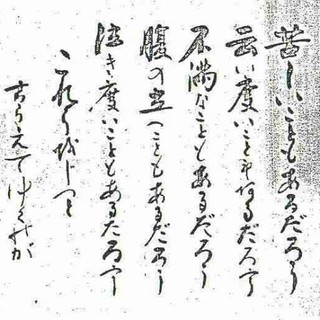 苦しいこともあるだろう
云い度いこともあるだろう
不満なこともあるだろう
腹の立つこともあるだろう
泣き度いこともあるだろう
これらをじつと
こらえてゆくのが